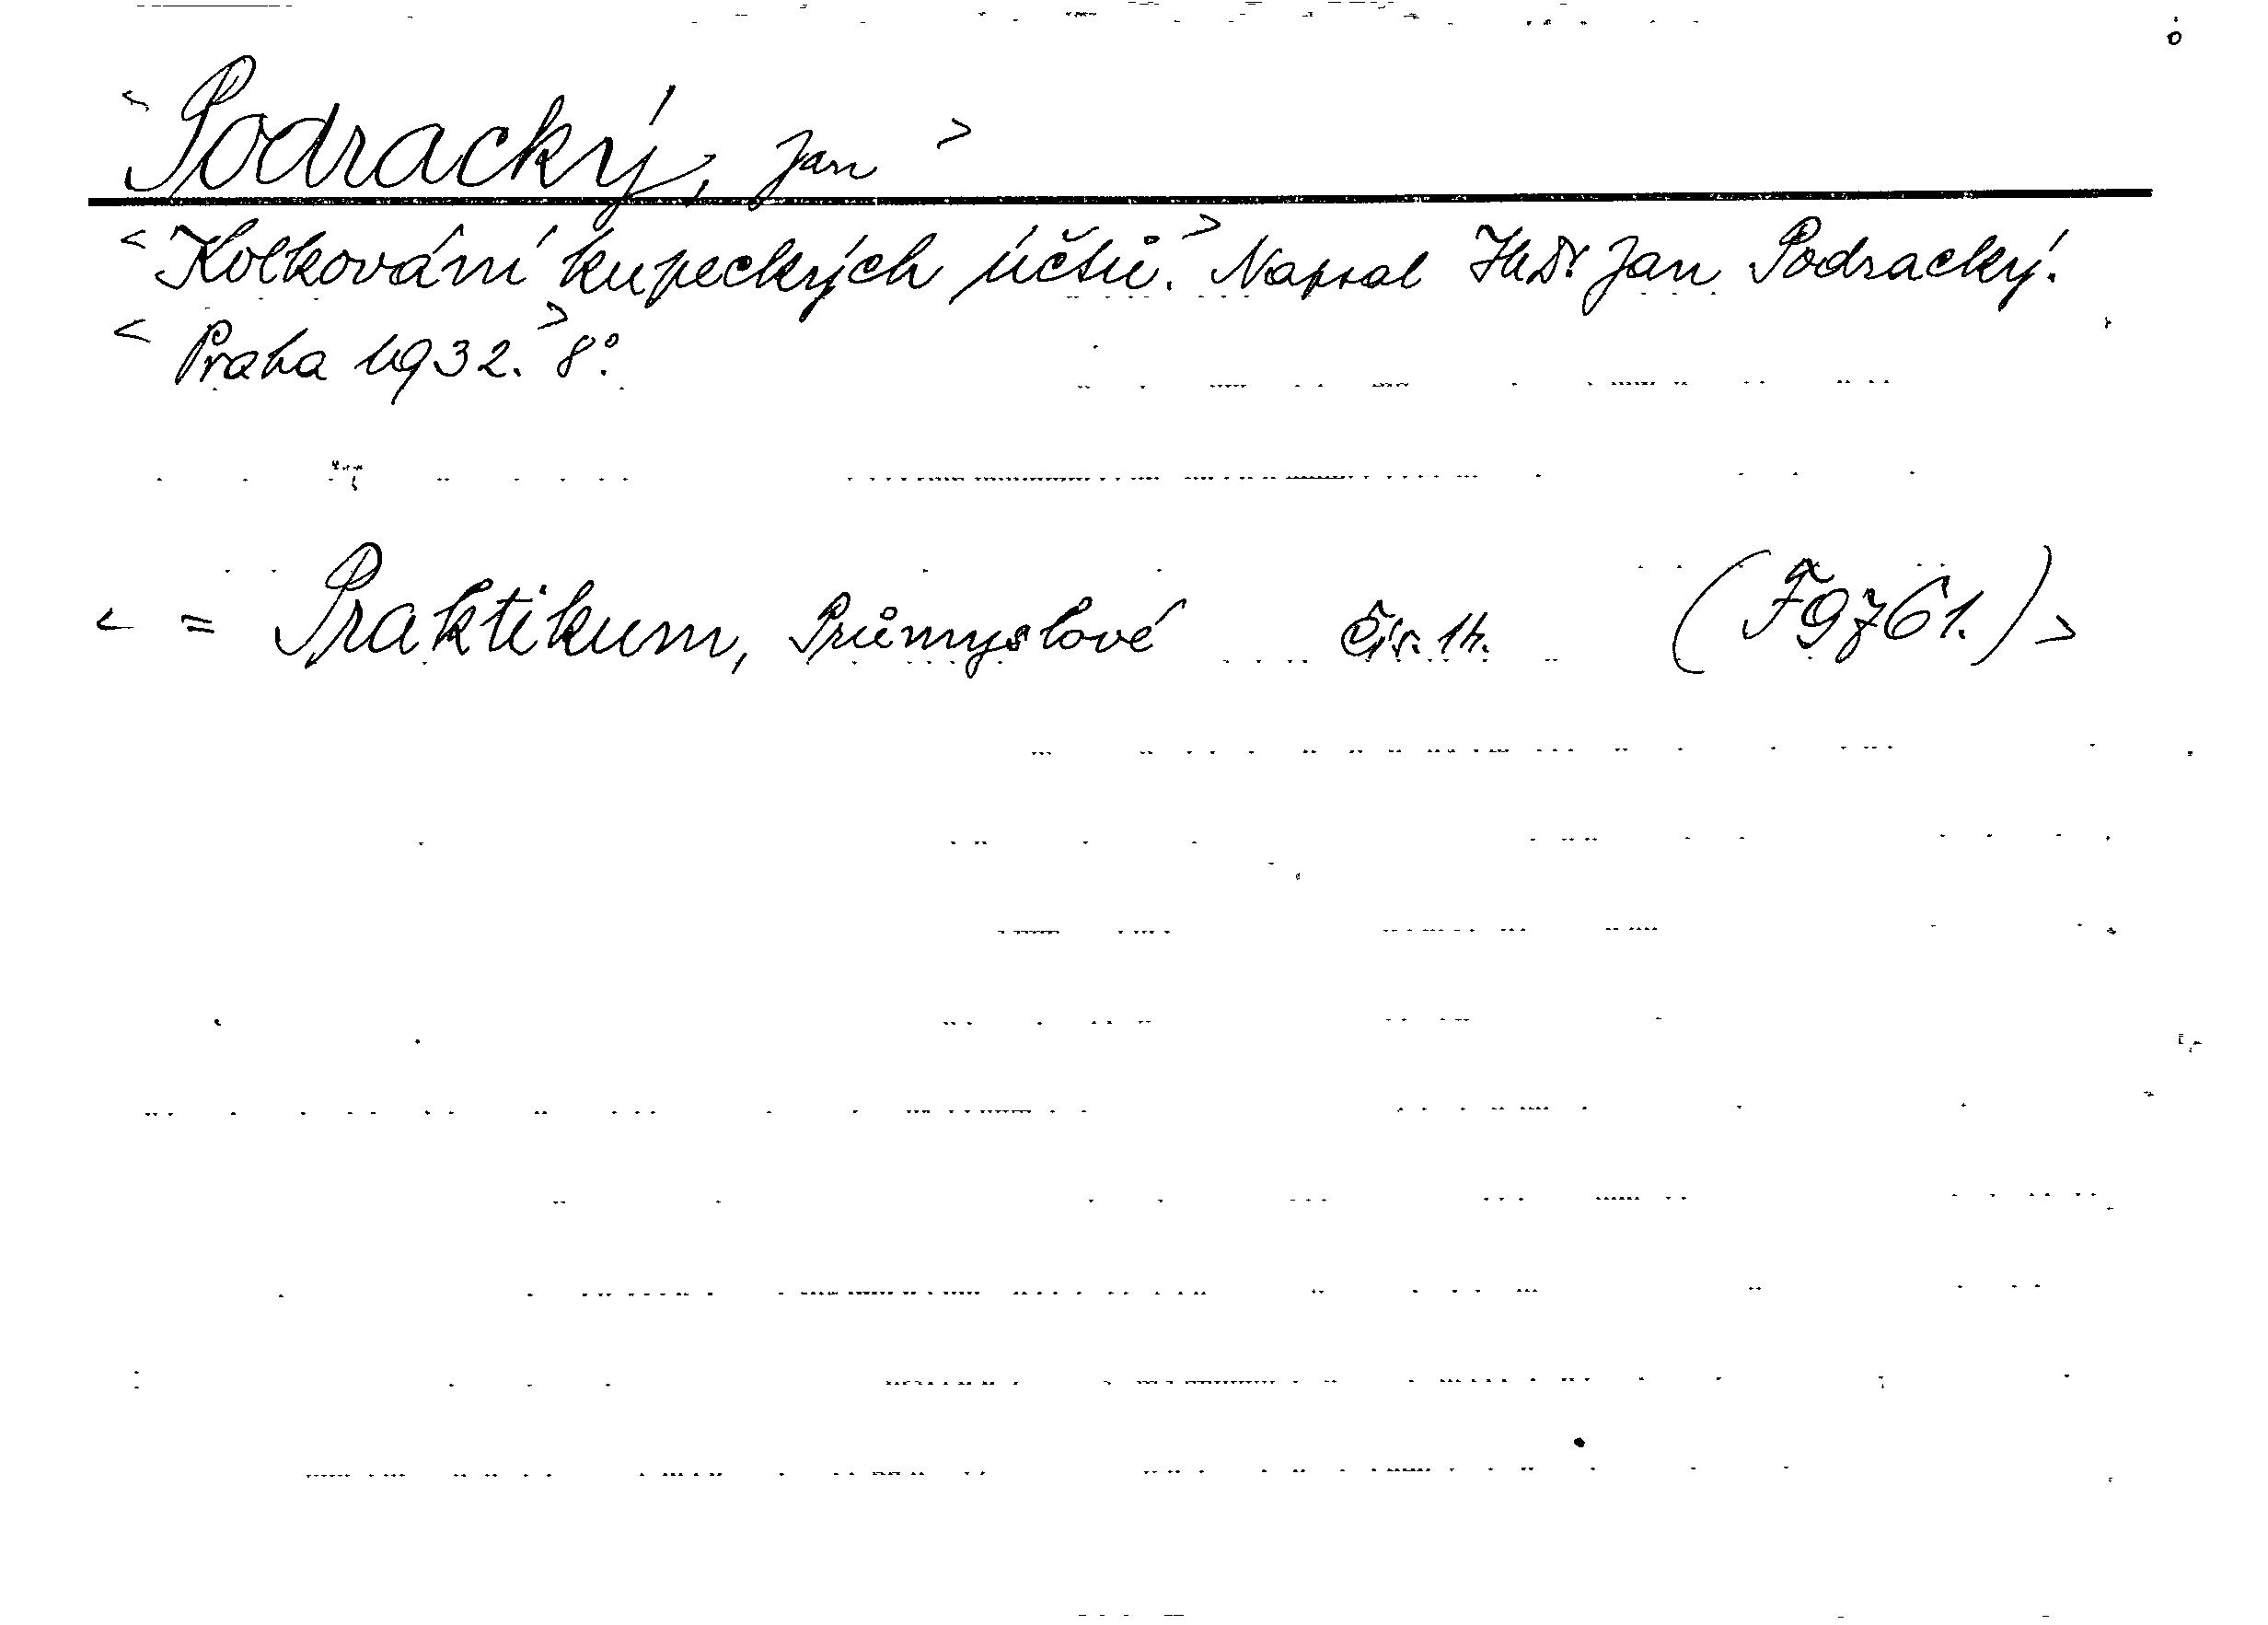 < Podracký, Jan >
< Kolkování kupeckých účtů. > Napsal JUDr Jan Podracký.
< Praha 1932. > 8°.
< = Praktikum, Průmyslové Čís. 14. (F9761.) >